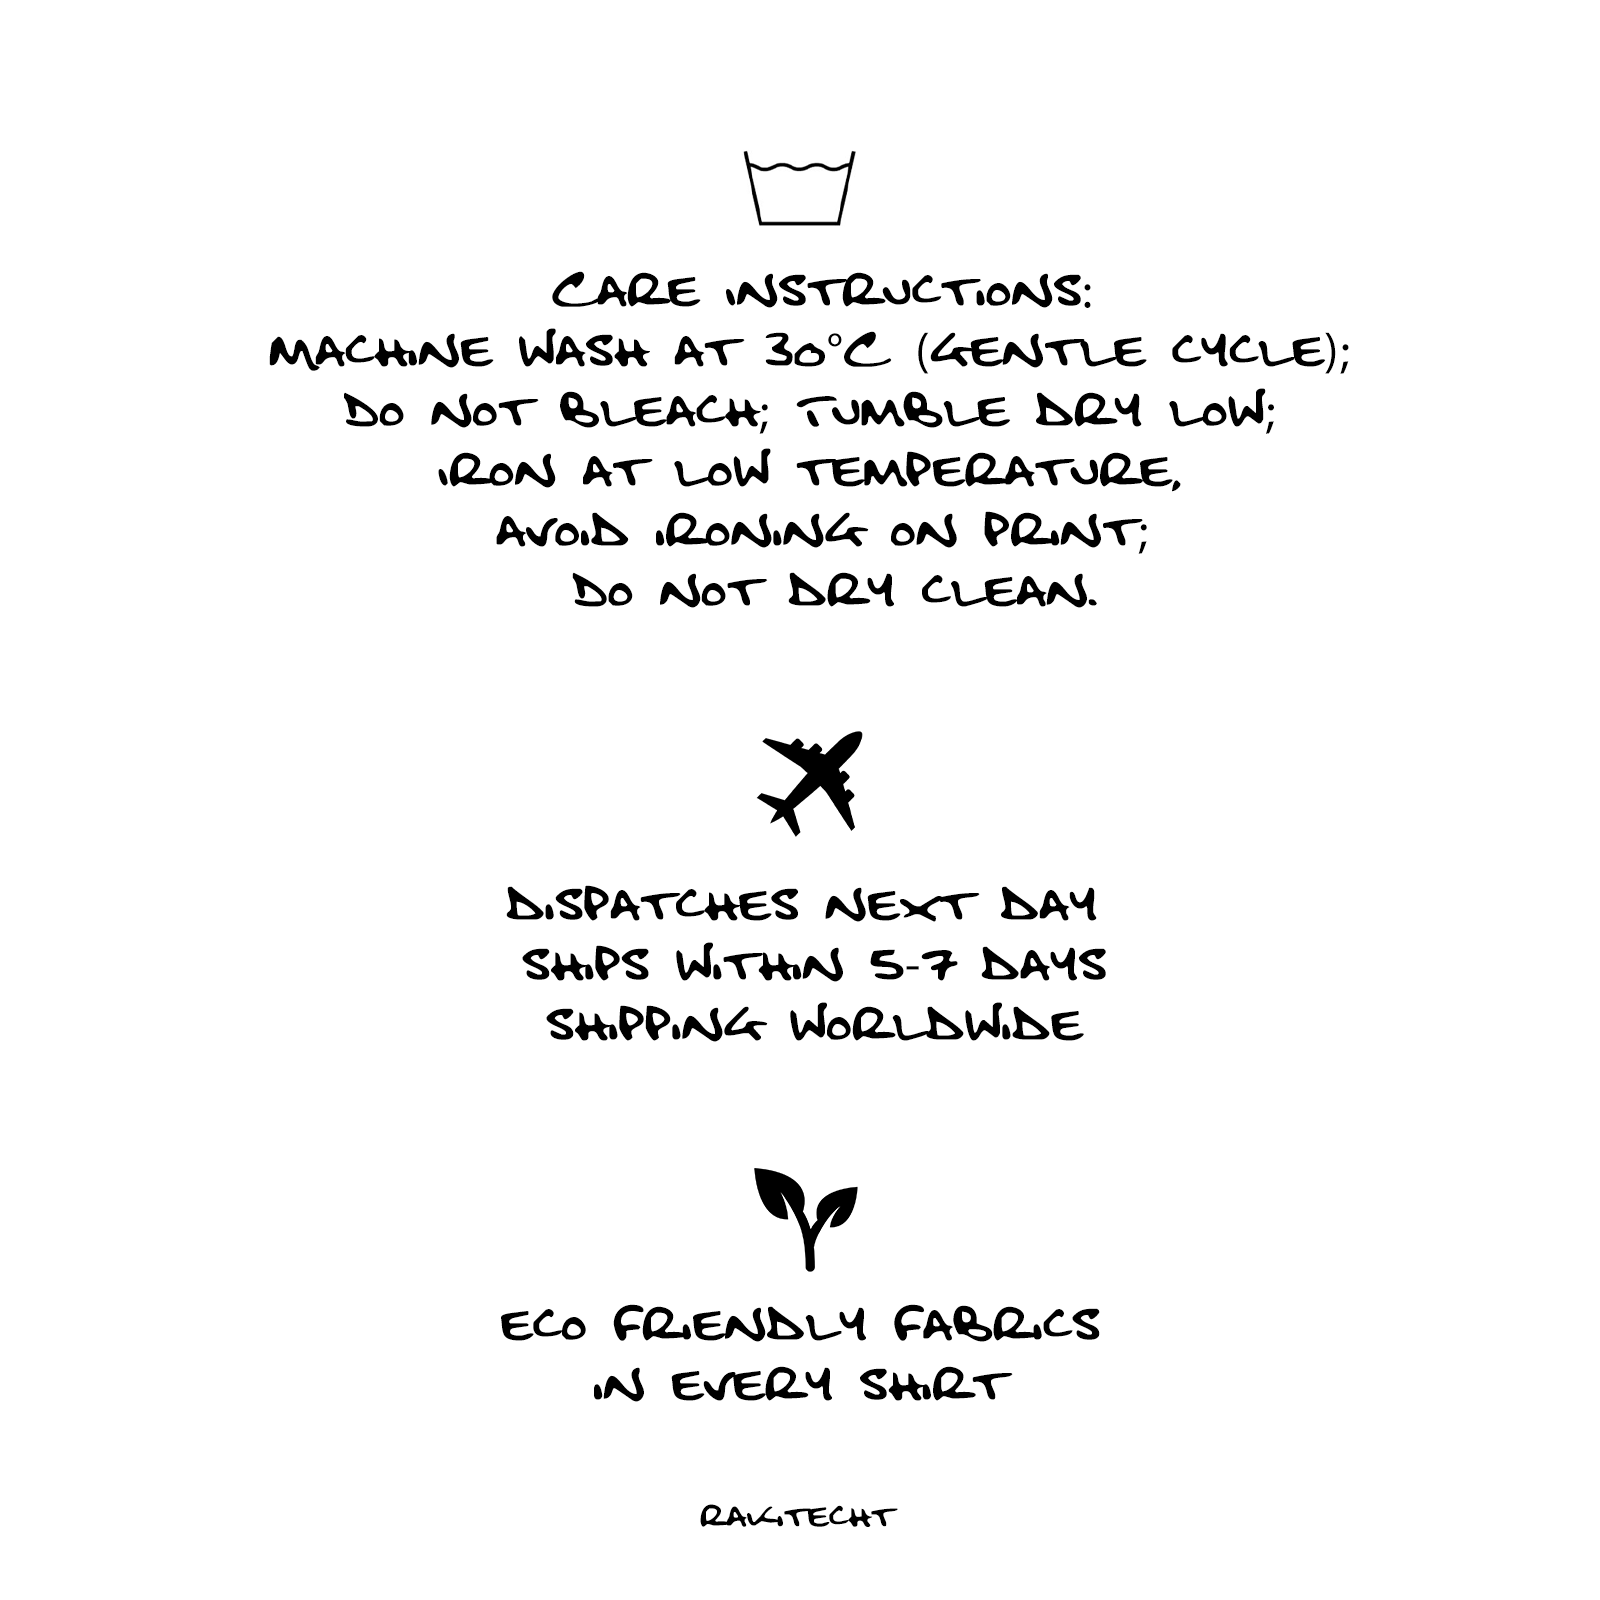 Care instructions:
Machine wash at 30°C (gentle cycle);
Do not bleach; Tumble dry low;
iron at low temperature,
avoid ironing on print;
Do not dry clean.
Dispatches next day
Ships within 5-7 days
Shipping Worldwide
Eco friendly fabrics
in every shirt
RAKITECHT